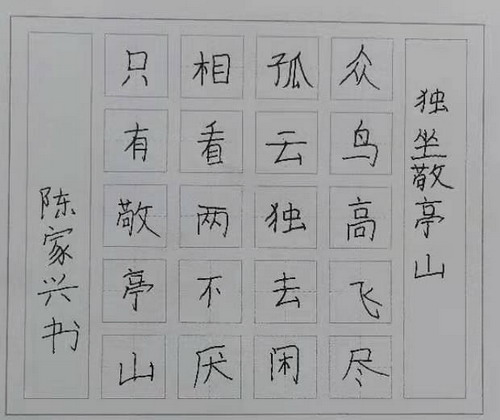 独坐敬亭山
众鸟高飞尽
孤云独去闲
相看两不厌
只有敬亭山
陈家兴书